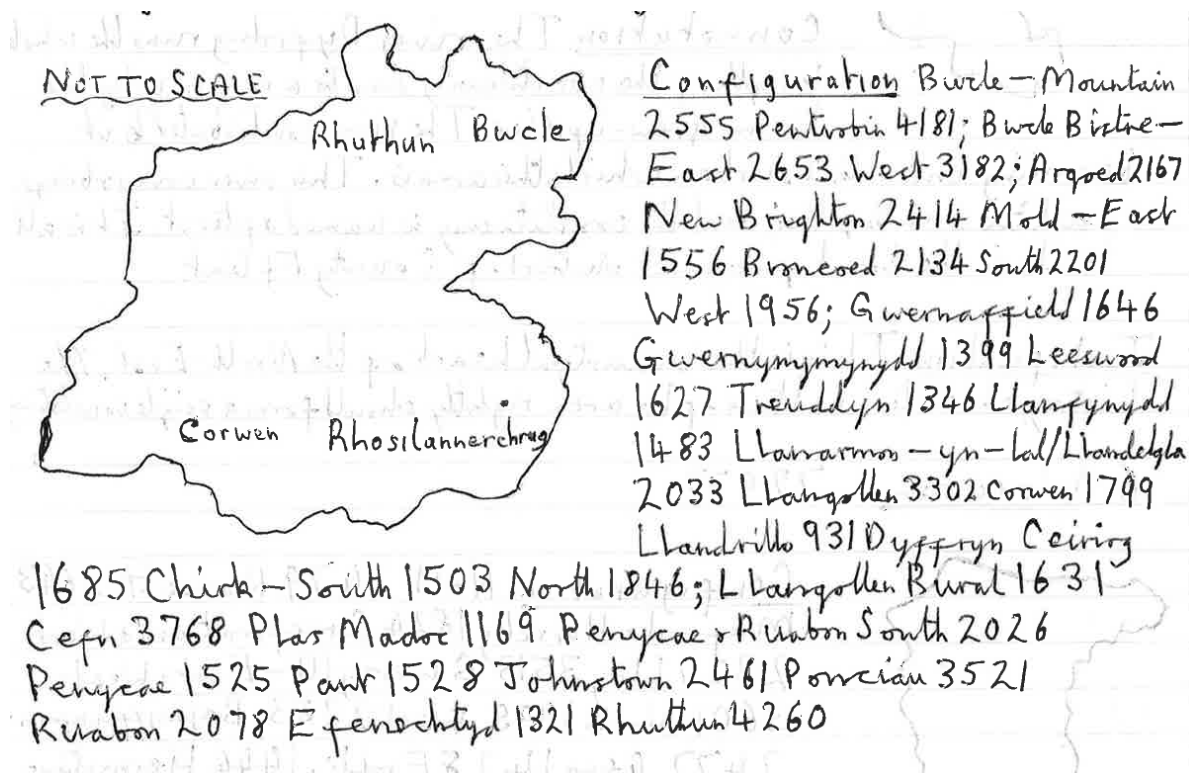 NOT TO SCALE
Rhuthun Bwcle
Corwen Rhosllannerchrug
Configuration Bwcle – Mountain
2555 Pentrobin 4181; Bwcle Bistre –
East 2653 West 3182; Argoed 2167
New Brighton 2414 Mold – East
1556 Broncoed 2134 South 2201
West 1956; Gwernaffield 1646
Gwernymynydd 1399 Leeswood
1627 Treuddyn 1346 Llanfynydd
1483 Llanarmon-yn-Ial/Llandegla
2033 Llangollen 3302 Corwen 1799
Llandrillo 931 Dyffryn Ceiriog
1685 Chirk – South 1503 North 1846; Llangollen Rural 1631
Cefn 3768 Plas Madoc 1169 Penycae & Ruabon South 2026
Penycae 1525 Pant 1528 Johnstown 2461 Ponciau 3521
Ruabon 2078 Efenechtyd 1321 Rhuthun 4260